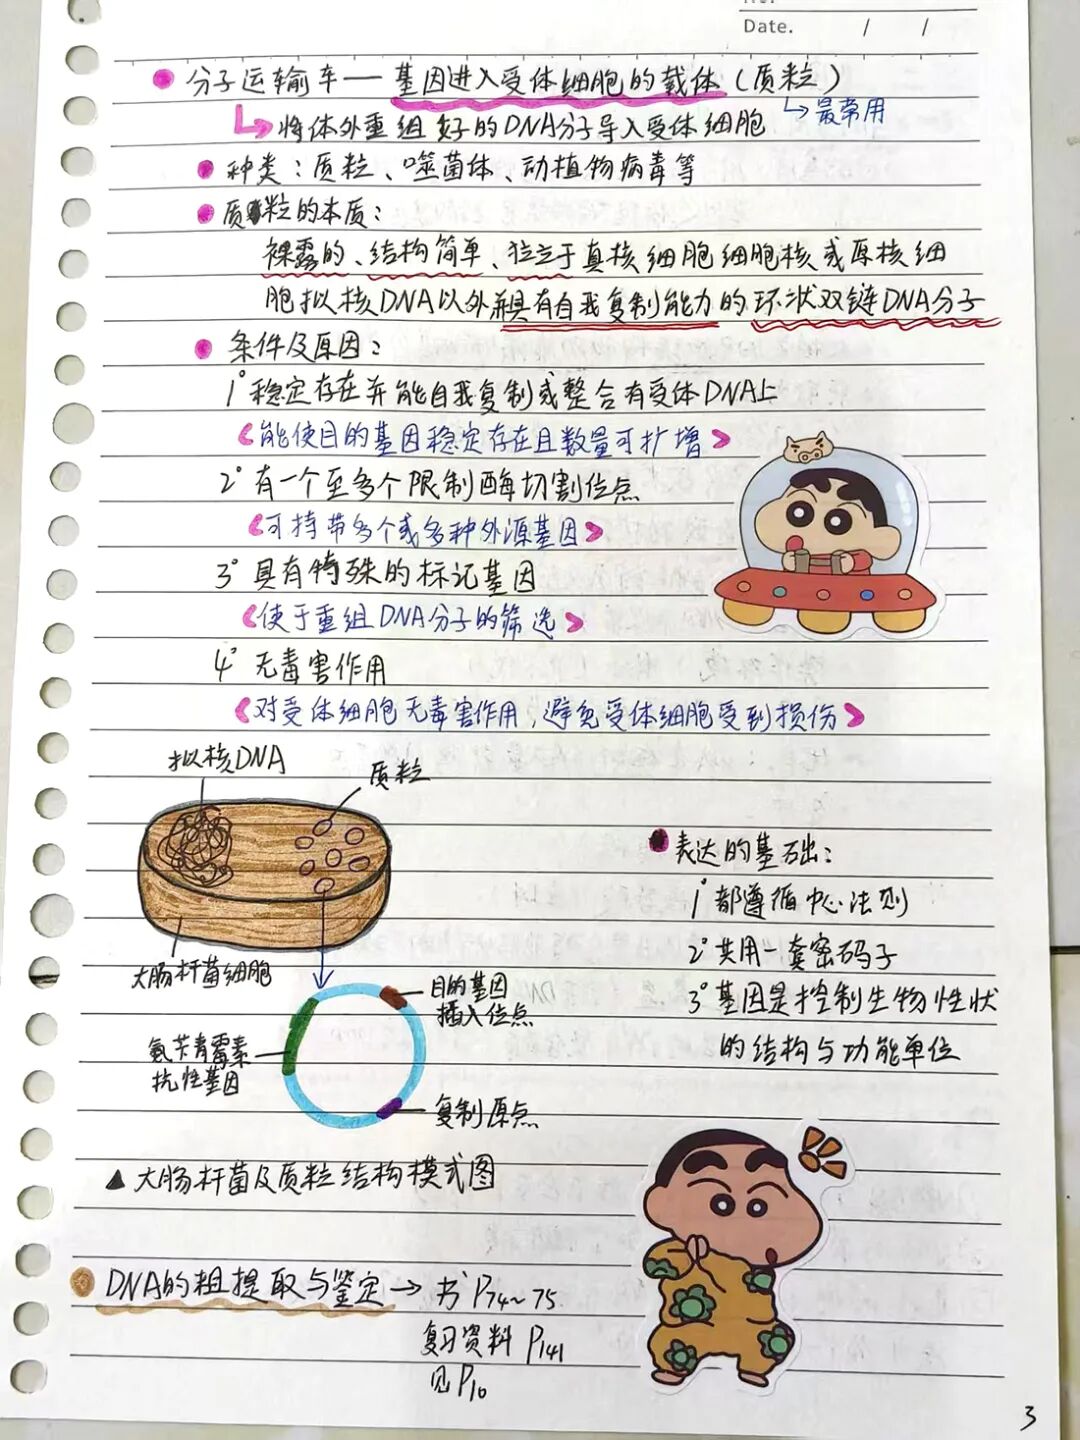 Date. / /
分子运输车——基因进入受体细胞的载体(质粒)
↳最常用
↳将体外重组好的DNA分子导入受体细胞
种类:质粒、噬菌体、动植物病毒等
质粒的本质:
裸露的、结构简单、独立于真核细胞细胞核或原核细
胞拟核DNA以外并具有自我复制能力的环状双链DNA分子
条件及原因:
1°稳定存在并能自我复制或整合有受体DNA上
《能使目的基因稳定存在且数量可扩增》
2°有一个至多个限制酶切割位点
《可持带多个或多种外源基因》
3°具有特殊的标记基因
《便于重组DNA分子的筛选》
4°无毒害作用
《对受体细胞无毒害作用,避免受体细胞受到损伤》
拟核DNA
质粒
大肠杆菌细胞
目的基因
插入位点
氨苄青霉素
抗性基因
复制原点
▲大肠杆菌及质粒结构模式图
表达的基础:
1°都遵循中心法则
2°共用一套密码子
3°基因是控制生物性状
的结构与功能单位
DNA的粗提取与鉴定→书P74~75
复习资料 P141
见P10
3